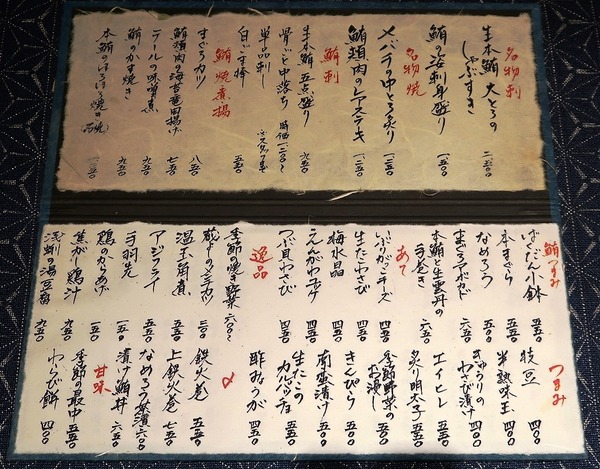 名物刺
生本鮪大とろの
しゃぶすき 二一五〇
鮪の姿刺身盛り 一五〇〇
名物焼
メバチの中とろ炙り 一三五〇
鮪頬肉のレアステーキ 一二五〇
鮪刺
生本鮪五点盛り
骨ごと中落ち 時価一二〇〇〜
単品刺し
白ごま揚 五五〇
鮪 焼・煮・揚
まぐろカツ 八五〇
鮪頬肉の海苔竜田揚げ 七五〇
テールの味噌煮 九五〇
鮪のかま焼き 九五〇
本鮪のほろほろ焼き
鮪つまみ
ばくだん小鉢 五五〇
本まぐら 五五〇
なめろう 五五〇
まぐろアボカド 五五〇
本鮪と生雲丹の
手巻き 六五〇
あて
いぶりがっこチーズ 四五〇
生たこわさび 四五〇
梅水晶 四五〇
えんがわユッケ 四五〇
つぶ貝わさび 四五〇
逸品
季節の焼き野菜 六〇〇〜
蔵子のメンチカツ 三〇〇
温玉角煮 五五〇
アジフライ 五五〇
手羽先 一五〇
鶏のからあげ 五五〇
焦がし鶏汁 五五〇
浅蜊の湯豆腐 九五〇
つまみ
枝豆 四〇〇
半熟味玉 四〇〇
きゅうりの
わさび漬け 四〇〇
エイヒレ 五五〇
炙り明太子 五五〇
季節野菜の
お浸し 四五〇
きんぴら 四五〇
南蛮漬け 五五〇
生たこの
カルパッチョ 五五〇
酢みょうが 四五〇
〆
鉄火巻 五五〇
上鉄火巻 七五〇
なめろう茶漬 六〇〇
漬け鮪丼 六五〇
甘味
季節の最中 五五〇
わらび餅 四〇〇